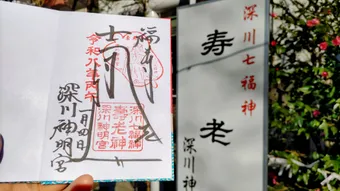 福寿
令和八年丙午
一月四日
深川七福神
寿老神
深川神明宮
深川神明宮
深川七福神
寿老
深川神